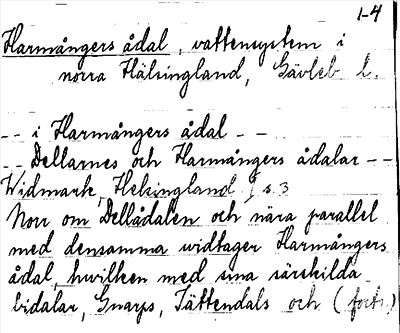 1-4
Harmångers ådal, vattensystem i
norra Hälsingland, Gävleb. l.
-- i Harmångers ådal --
-- Dellarnes och Harmångers ådalar --
Widmark, Helsingland I s. 3
Norr om Dellådalen och nära parallel
med densamma vidtager Harmångers
ådal, hwilken med sina särskilda
bidalar, Gnarps, Jättendals och (forts.)